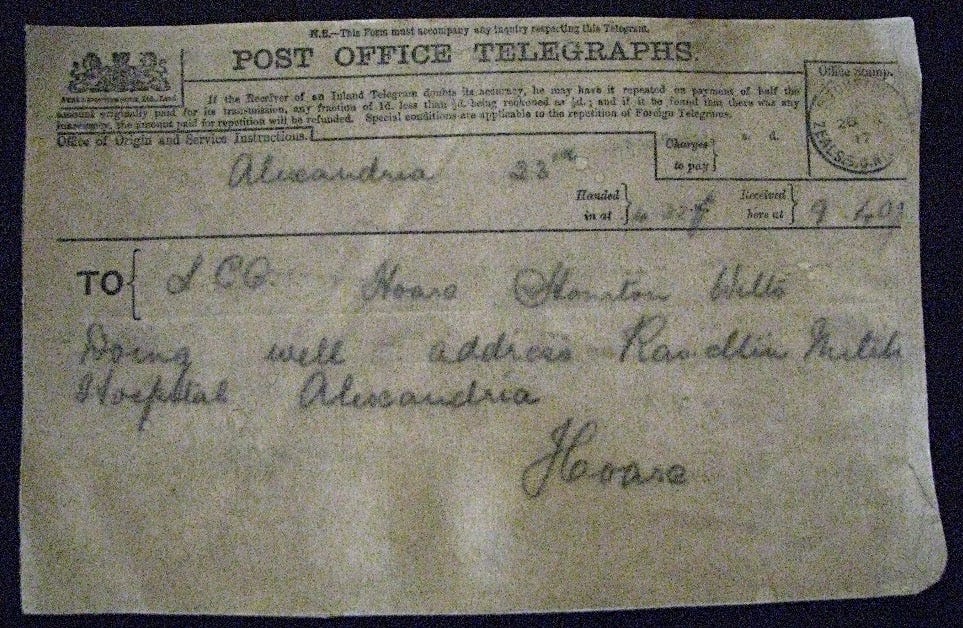 N.B.—This Form must accompany any inquiry respecting this Telegram.
POST OFFICE TELEGRAPHS.
If the Receiver of an Inland Telegram doubts its accuracy, he may have it repeated on payment of half the
amount originally paid for its transmission, any fraction of 1d. less than ½d. being reckoned as ½d.; and if it be found that there was any
inaccuracy, the amount paid for repetition will be refunded. Special conditions are applicable to the repetition of Foreign Telegrams.
Office Stamp.
ZEALS S.O.
Office of Origin and Service Instructions.
Charges to pay
s. d.
Alexandria 23
Handed in at
Received here at
TO
Hoare Stourton Wilts
Doing well address
Hospital Alexandria
Hoare